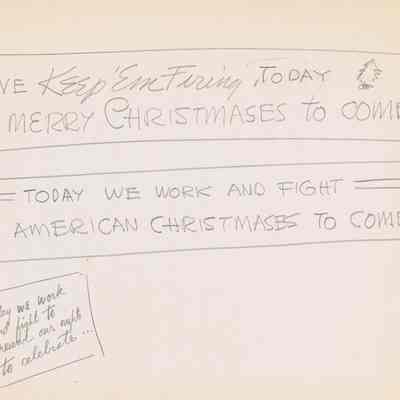 VE Keep 'Em Firing TODAY
MERRY CHRISTMASES to COME
TODAY WE WORK AND FIGHT
AMERICAN CHRISTMASES TO COME
ay we work
fight to
our right
to celebrate...